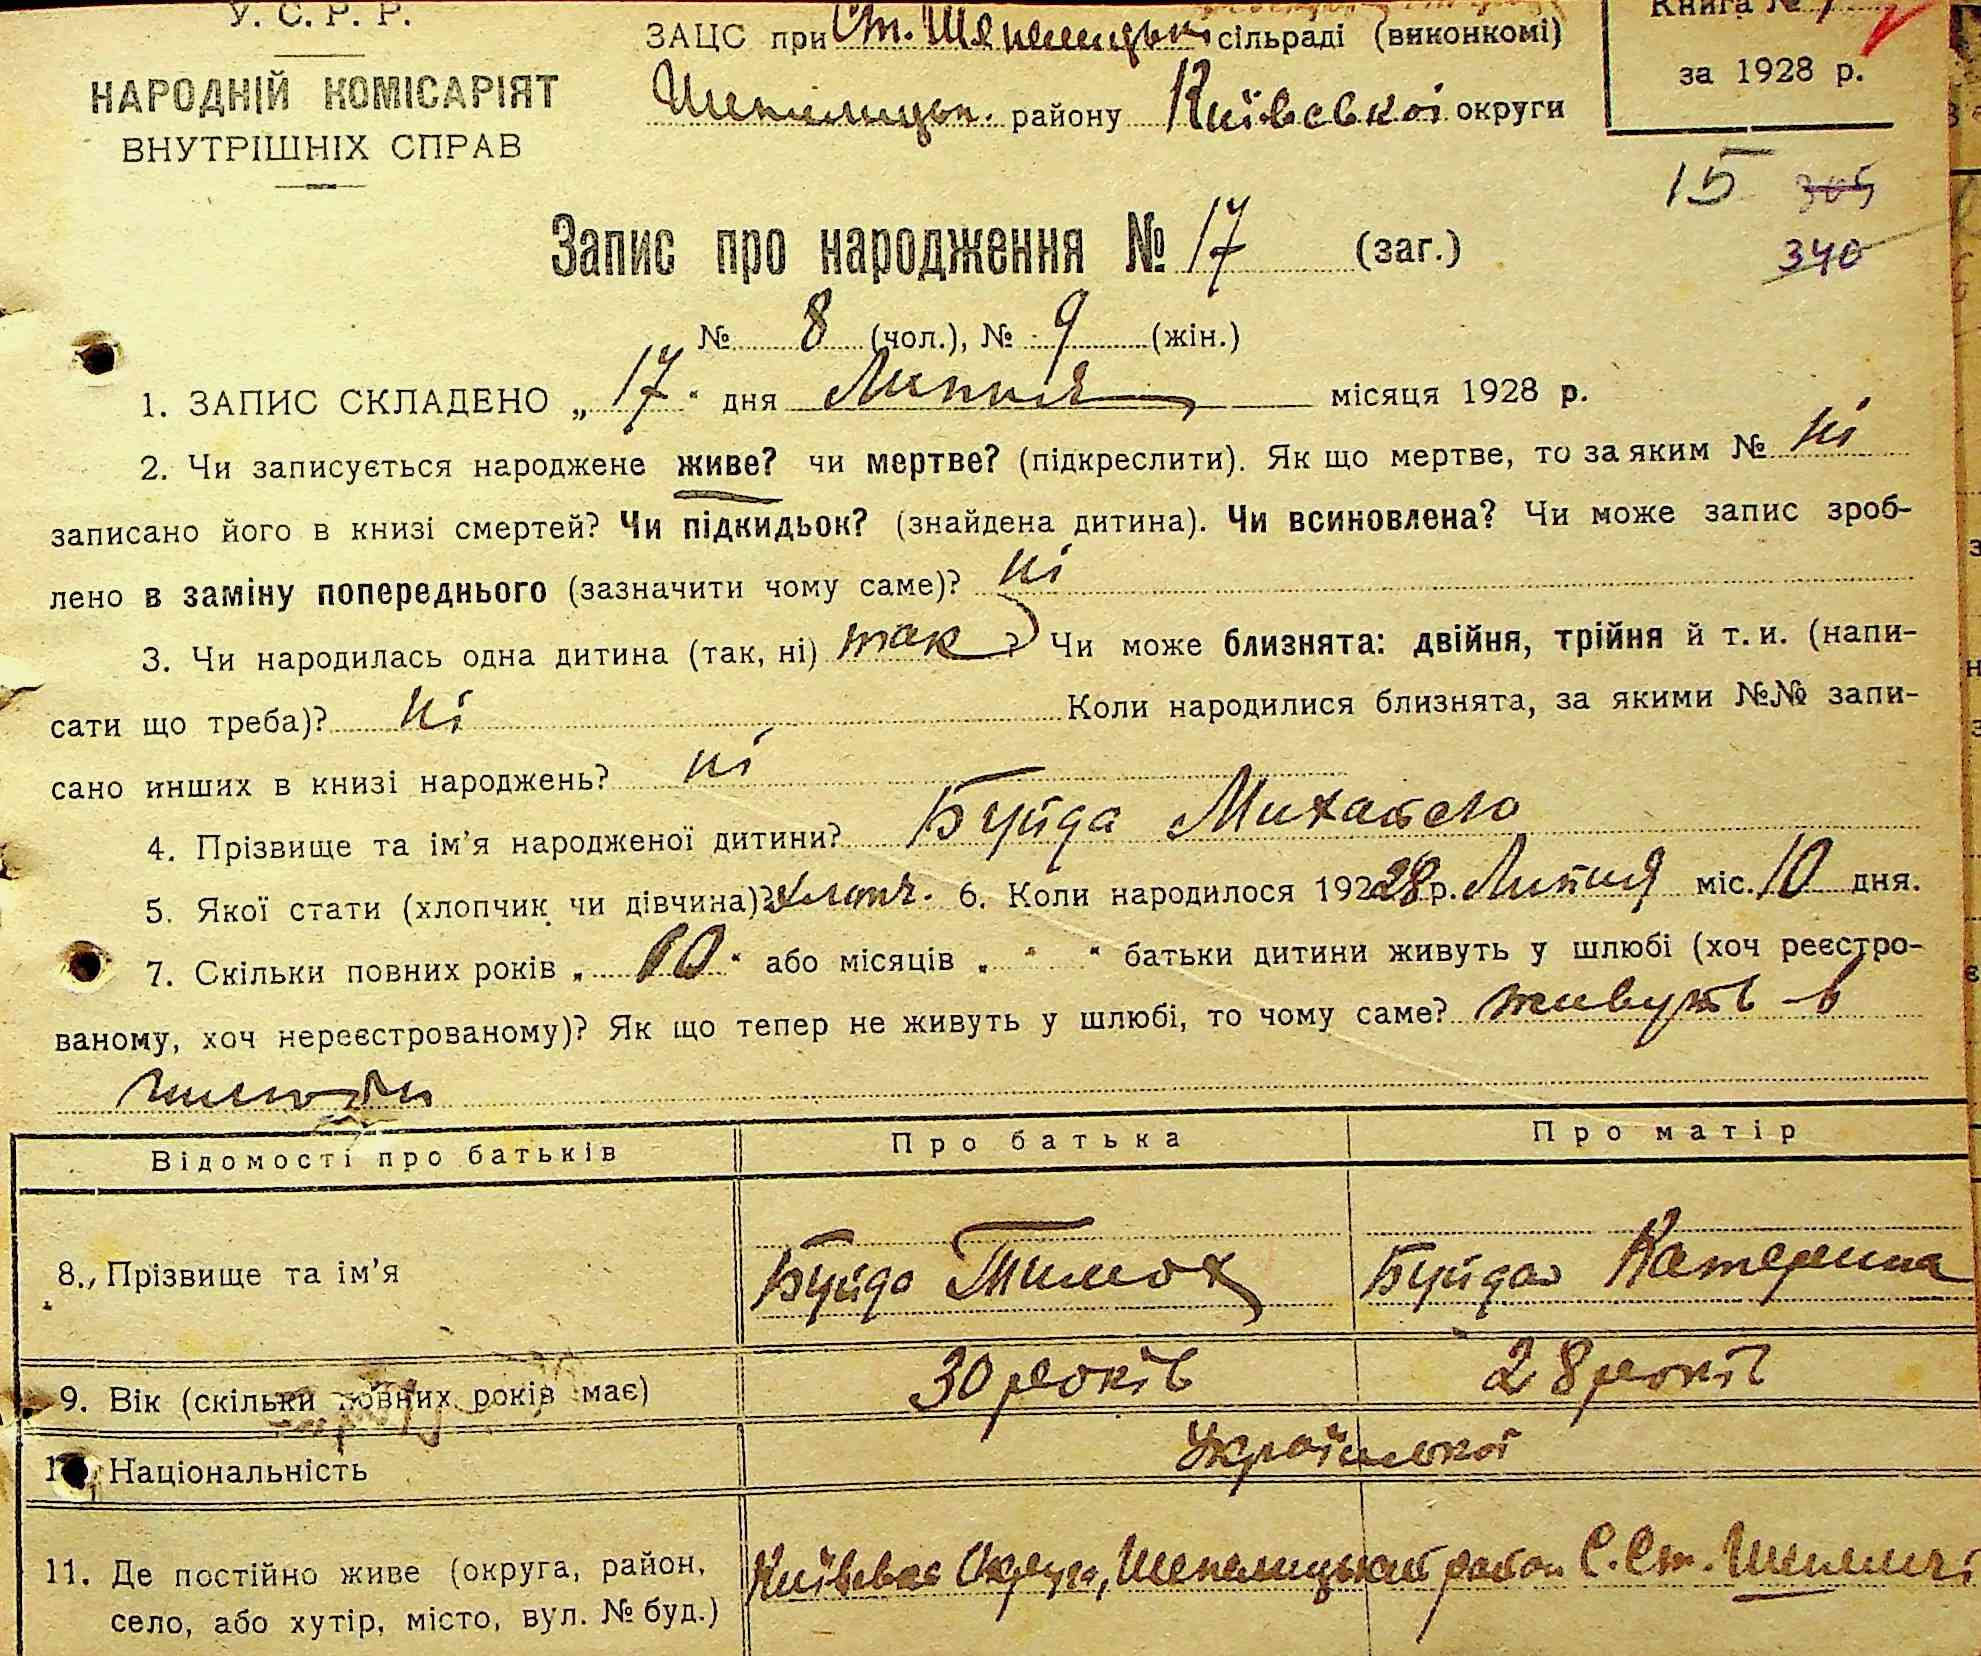 У. С. Р. Р.
НАРОДНІЙ КОМІСАРІЯТ
ВНУТРІШНІХ СПРАВ
ЗАЦС при Ст. Шепелицькі сільраді (виконкомі)
Шепелицьк. району Київської округи
Книга №
за 1928 р.
15 305
340
Запис про народження № 17 (заг.)
№ 8 (чол.), № 9 (жін.)
1. ЗАПИС СКЛАДЕНО „ 17 “ дня Липня місяця 1928 р.
2. Чи записується народжене живе? чи мертве? (підкреслити). Як що мертве, то за яким № ні
записано його в книзі смертей? Чи підкидьок? (знайдена дитина). Чи всиновлена? Чи може запис зроб-
лено в заміну попереднього (зазначити чому саме)? ні
3. Чи народилась одна дитина (так, ні) так ? Чи може близнята: двійня, трійня й т. и. (напи-
сати що треба)? ні Коли народилися близнята, за якими №№ запи-
сано инших в книзі народжень? ні
4. Прізвище та ім’я народженої дитини? Буйда Михайло
5. Якої стати (хлопчик чи дівчина)? хлопч. 6. Коли народилося 19228 р. Липня міс. 10 дня.
7. Скільки повних років „ 10 “ або місяців „ “ батьки дитини живуть у шлюбі (хоч реєстро-
ваному, хоч нереєстрованому)? Як що тепер не живуть у шлюбі, то чому саме? живуть в
шлюбі
Відомості про батьків Про батька Про матір
8. Прізвище та ім’я Буйда Тимох Буйда Катерина
9. Вік (скільки повних років має) 30 років 28 років
Національність Української
11. Де постійно живе (округа, район,
село, або хутір, місто, вул. № буд.)
Київська Округа, Шепелицький район С. Ст. Шепеличі